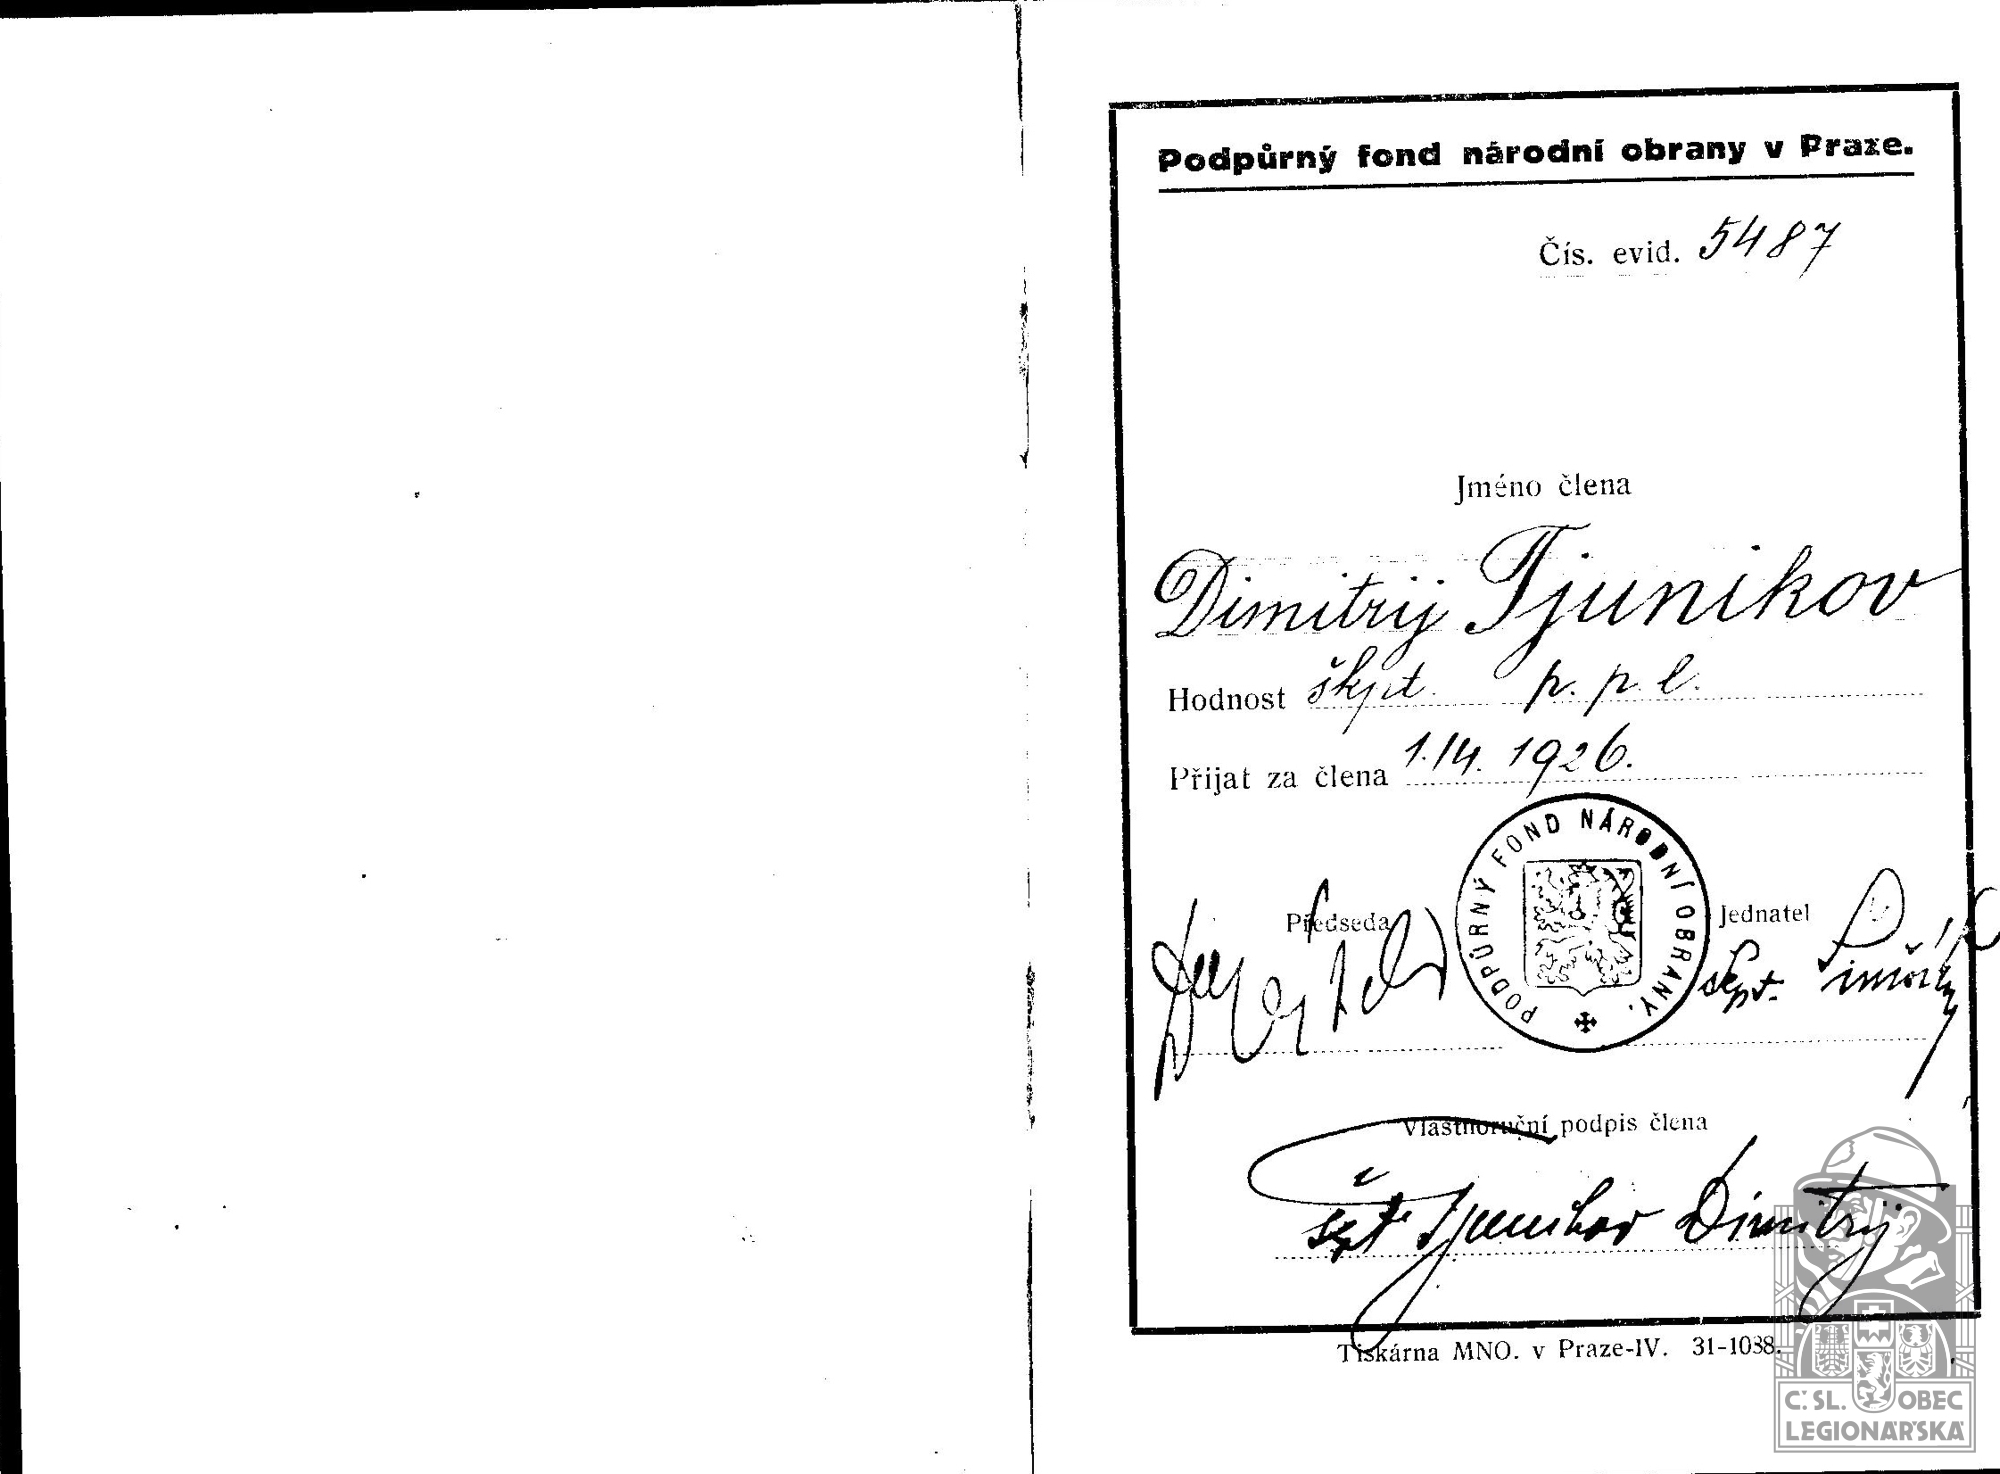 Podpůrný fond národní obrany v Praze.
Čís. evid. 5487
Jméno člena
Dimitrij Tjunikov
Hodnost škpt. p. p. l.
Přijat za člena 1./4. 1926.
PODPŮRNÝ FOND NÁRODNÍ OBRANY.
Předseda
Jednatel
škpt.
Vlastnoruční podpis člena
škpt Tjunikov Dimitrij
Tiskárna MNO. v Praze-IV. 31-1038.
Č.SL. OBEC
LEGIONÁŘSKÁ